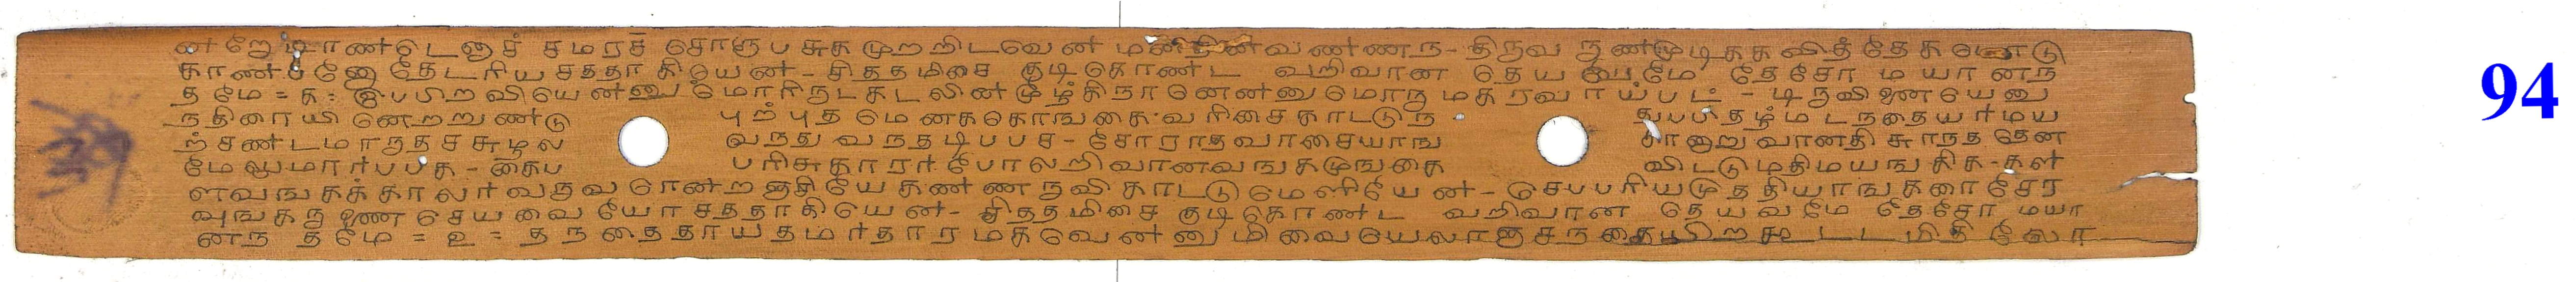 ன றே மாண்டெனுச் சமரச சொரூபசுக முற்றிடவென் வண்ணந- திருவ ருண்முடிகக வித்தேக மொடு
காண்ச னேதேடரிய சததா கியென்- சிததமிசை குடிகொண்ட வறிவான தெய வமே தேசோ மயானந
தமே = க = இபபிறவியென்னு மொரிருடகடலின்மூழ்கிநா னென்னுமொரு மகரவாய்பபட் - டிருவிணையெனு
ந்திரையி னெற்றுண்டு புற்புத மெனககொஙகை வரிசைகாட்டுந துபபிதழ்மடநதையர்மய
ற்சண்டமாருதச சுழல வநது வநதடிபபச - சோராதவாசையாங கானுறுவானதி சுரநத தென
மேலுமார்பபக - கைப பரிசுகாரர்போலறிவானவஙகமுஙகை விட்டுமதிமயஙகிக-கள்
ளவஙகக்காலர் வருவ ரென்றஞ்சியே கண்ணருவி காட்டுமெளியேன்- செபபரியமுத்தியாங கரைசேர
வுஙகருணை செயவை யோ சததாகியென்- சிததமிசை குடிகொண்ட வறிவான தெயவமே தேசோ மயா
னந தமே = உ = தநதைதாயதமர்தாரமகவென்னுமிவையெலாஞ்சநதையிறகூட்டமிதி லோ
94